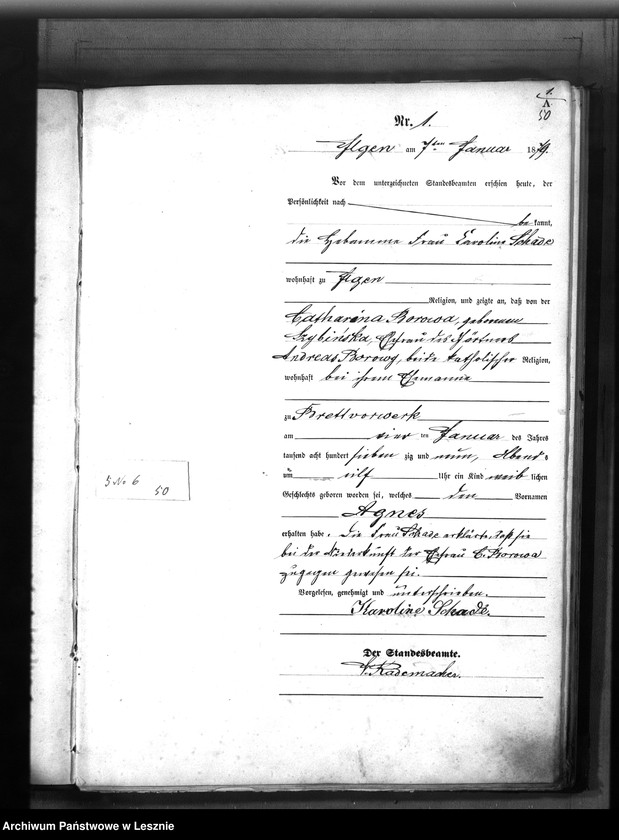 1.
A
50
Nr. 1.
Ilgen am 7ten Januar 1879.
Vor dem unterzeichneten Standesbeamten erschien heute, der
Persönlichkeit nach
bekannt,
die Hebamme Frau Caroline Schade
wohnhaft zu Ilgen
Religion, und zeigte an, daß von der
Catharina Borowa, geborenen
Szybińska, Ehefrau des Gärtners
Andreas Borowy, beide katholischer Religion,
wohnhaft bei ihrem Ehemanne
zu Brettvorwerk
am vier ten Januar des Jahres
tausend acht hundert sieben zig und neun, Abends
um eilf Uhr ein Kind weib lichen
Geschlechts geboren worden sei, welches den Vornamen
Agnes
erhalten habe. Die Frau Schade erklärte, daß sie
bei der Niederkunft der Ehefrau C. Borowa
zugegen gewesen sei.
Vorgelesen, genehmigt und unterschrieben.
Karoline Schade.
Der Standesbeamte.
Rademacher.
5 No 6
50
Archiwum Państwowe w Lesznie